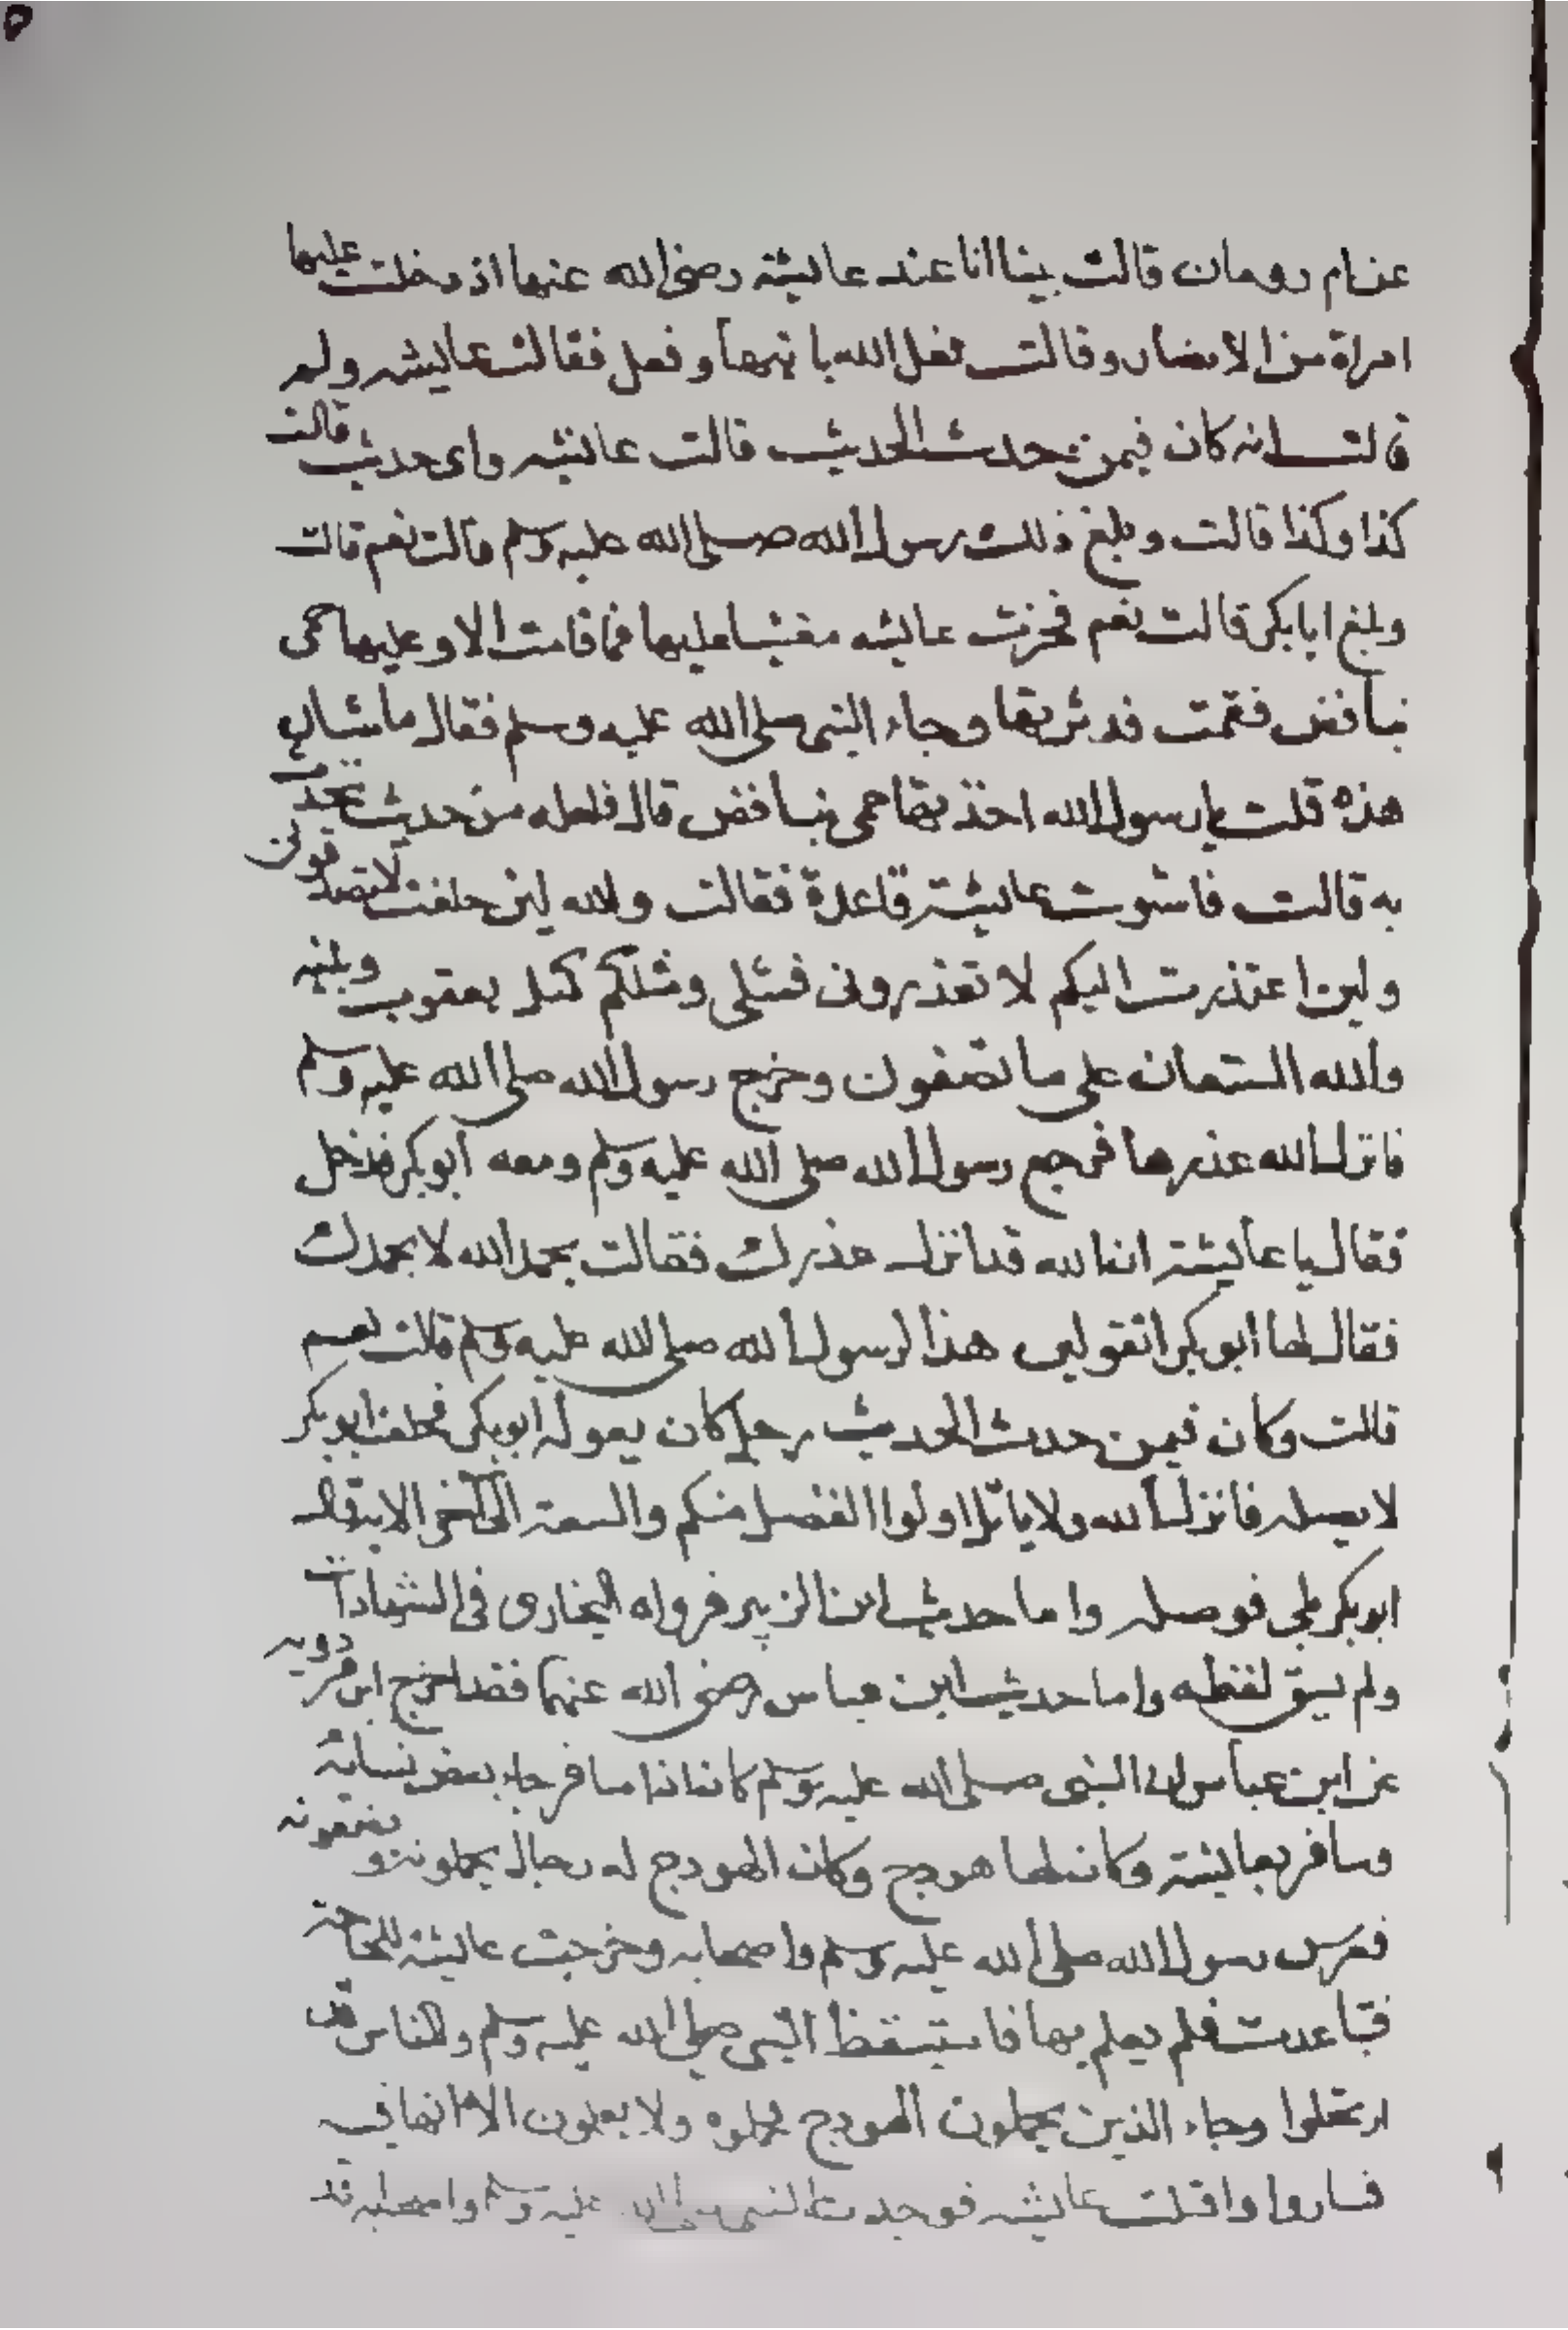 ٥
عن ام رومان قالت بينا انا عند عايشة رضي الله عنها اذ دخلت عليها
امراة من الانصار وقالت فعل الله بابنها وفعل فقالت عايشه ولم
قالت انه كان فيمن حدث الحديث قالت عائشه واى حديث قالت
كذا وكذا قالت وبلغ ذلك رسول الله صلى الله عليه وسلم قالت نعم قالت
وبلغ ابا بكر قالت نعم فخرت عايشه مغشيا عليها فما قامت الا وعليها حمى
بنافض فقمت فدثرتها وجاء النبي صلى الله عليه وسلم فقال ما شان
هذه قلت يا رسول الله اخذتها حمى بنافض قال فلعله من حديث تحدث
به قالت فاستوت عايشة قاعدة فقالت والله لين حلفت لا تصدقونى
ولين اعتذرت اليكم لا تعذرونى فمثلى ومثلكم كمثل يعقوب وبنيه
والله المستعان على ما تصفون وخرج رسول الله صلى الله عليه وسلم
فانزل الله عذرها فرجع رسول الله صلى الله عليه وسلم ومعه ابو بكر فدخل
فقال يا عايشة ان الله قد انزل عذرك فقالت بحمد الله لا بحمدك
فقال لها ابو بكر اتقولين هذا لرسول الله صلى الله عليه وسلم قالت نعم
قالت وكان فيمن حدث الحديث رجل كان يعوله ابو بكر فحلف ابو بكر
لا يصله فانزل الله ولا ياتل اولوا الفضل منكم والسعة الى اخر الاية قال
ابو بكر بلى فوصله واما حديث ابن الزبير فرواه البخارى فى الشهادات
ولم يسق لفظه واما حديث ابن عباس رضي الله عنهما فقد اخرج ابن مردويه
عن ابن عباس ان النبي صلى الله عليه وسلم كان اذا سافر جاء ببعض نسائه
وسافر بعايشة وكان لها هودج وكان الهودج له رجال يحملونه ويضعونه
فعرس رسول الله صلى الله عليه وسلم واصحابه وخرجت عايشة للحاجة
فتباعدت فلم يعلم بها فاستيقظ النبي صلى الله عليه وسلم والناس قد
ارتحلوا وجاء الذين يحملون الهودج فحملوه ولا يعلمون الا انها فيه
فساروا واقبلت عايشه فوجدت النبي صلى الله عليه وسلم واصحابه قد